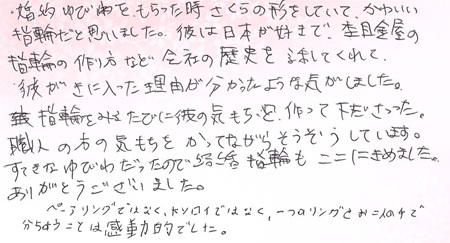 ・婚約ゆびわを、もらった時さくらの形をしていて、かわいい
指輪だと思いました。彼は日本が好きで、杢目金屋の
指輪の作り方など会社の歴史を話してくれて、
彼がきに入った理由が分かったような気がしました。
指輪をみるたびに彼の気もちと、作って下ださった。
職人の方の気もちをかってながらそうぞうしています。
すてきなゆびわだったので結婚指輪もここにきめました。
ありがとうございました。
ペアリングではなく、おソロイではなく、一つのリングをお二人の手で
分ちあうことは感動的でした。